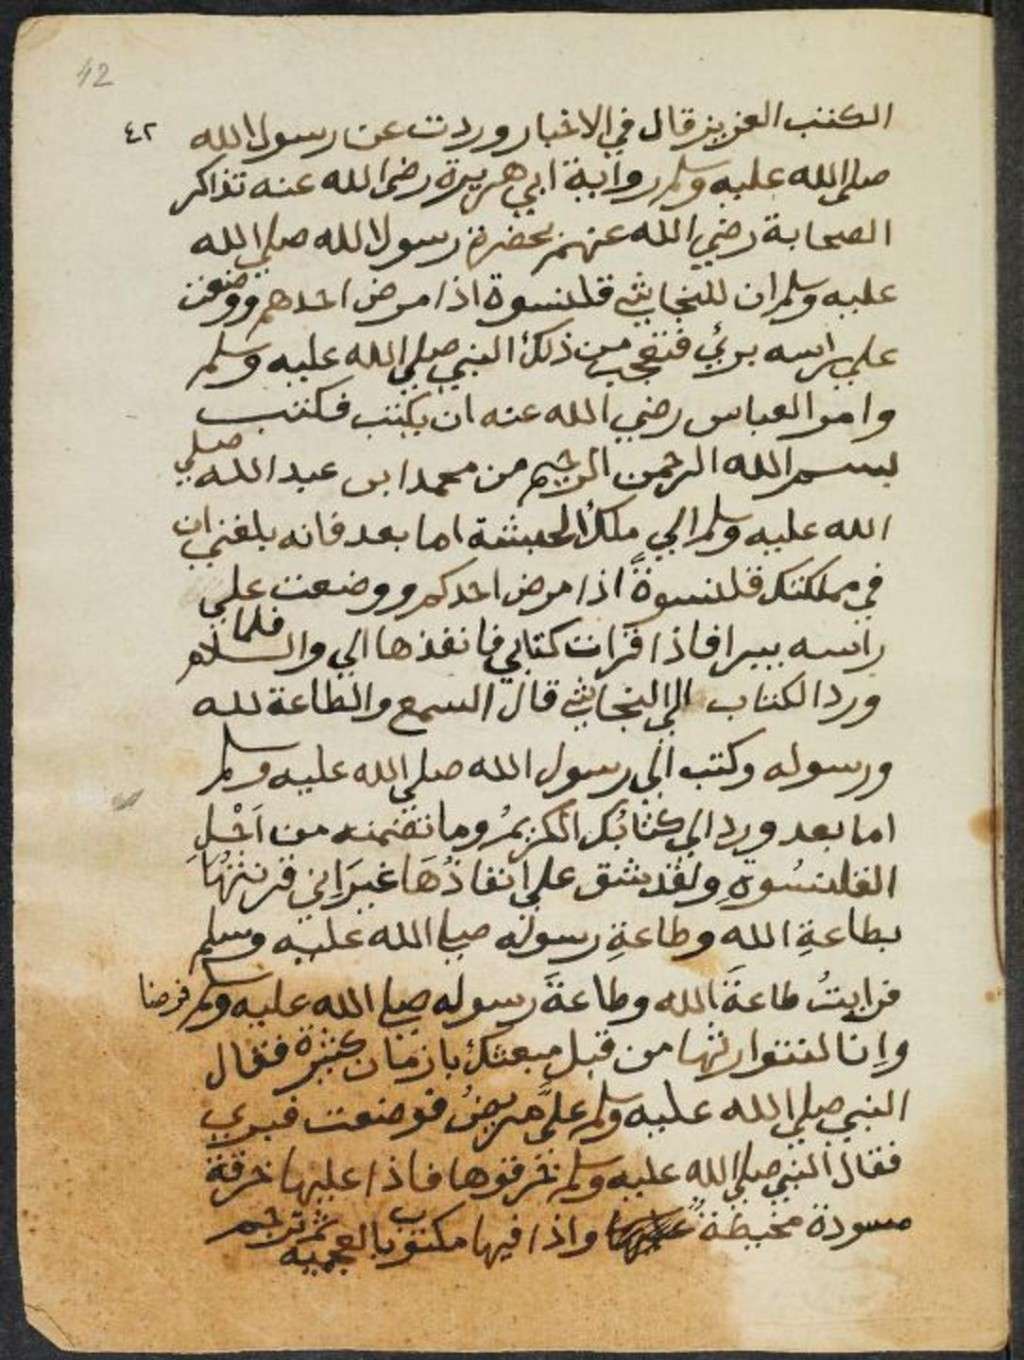 42
٤٢
الكتب العزيز قال في الاخبار وردت عن رسول الله
صلى الله عليه وسلم رواية ابي هريرة رضي الله عنه تذاكر
الصحابة رضي الله عنهم بحضرة رسول الله صلي الله
عليه وسلم ان للنجاشي قلنسوة اذا مرض احدهم ووضعت
علي راسه بريُ فتعجب من ذلك النبي صلي الله عليه وسلم
وامر العباس رضي الله عنه ان يكتب فكتب
بسم الله الرحمن الرحيم من محمد ابن عبد الله صلي
الله عليه وسلم الي ملك الحبشة اما بعد فانه بلغني ان
في مملكتك قلنسوةً اذا مرض احدكم ووضعت علي
راسه يبرا فاذا قرات كتابي فانفذها الي والسلام فلما
ورد الكتاب الي النجاشي قال السمع والطاعة لله
ورسوله وكتب الي رسول الله صلي الله عليه وسلم
اما بعد ورد الي كتابُك الكريمُ وما تضمنه من اَجْلِ
القلنسُوةِ ولقد يشق علي انفاذُهَا غيرَ اني قرنتُهَا
بطاعةِ الله وطاعةِ رسوله صلي الله عليه وسلم
فرايتُ طاعةَ الله وطاعةَ رسوله صلي الله عليه وسلم فرضا
وانا لنتوارثها من قبل مبعثك بازمان كثيرة فقال
النبي صلي الله عليه وسلم عليَّ مريضُ فوضعت فبري
فقال النبي صلي الله عليه وسلم خرقوها فاذا عليها خرقة
مسودة مخيطة واذا فيها مكتوب بالعجمية ثم ترجم